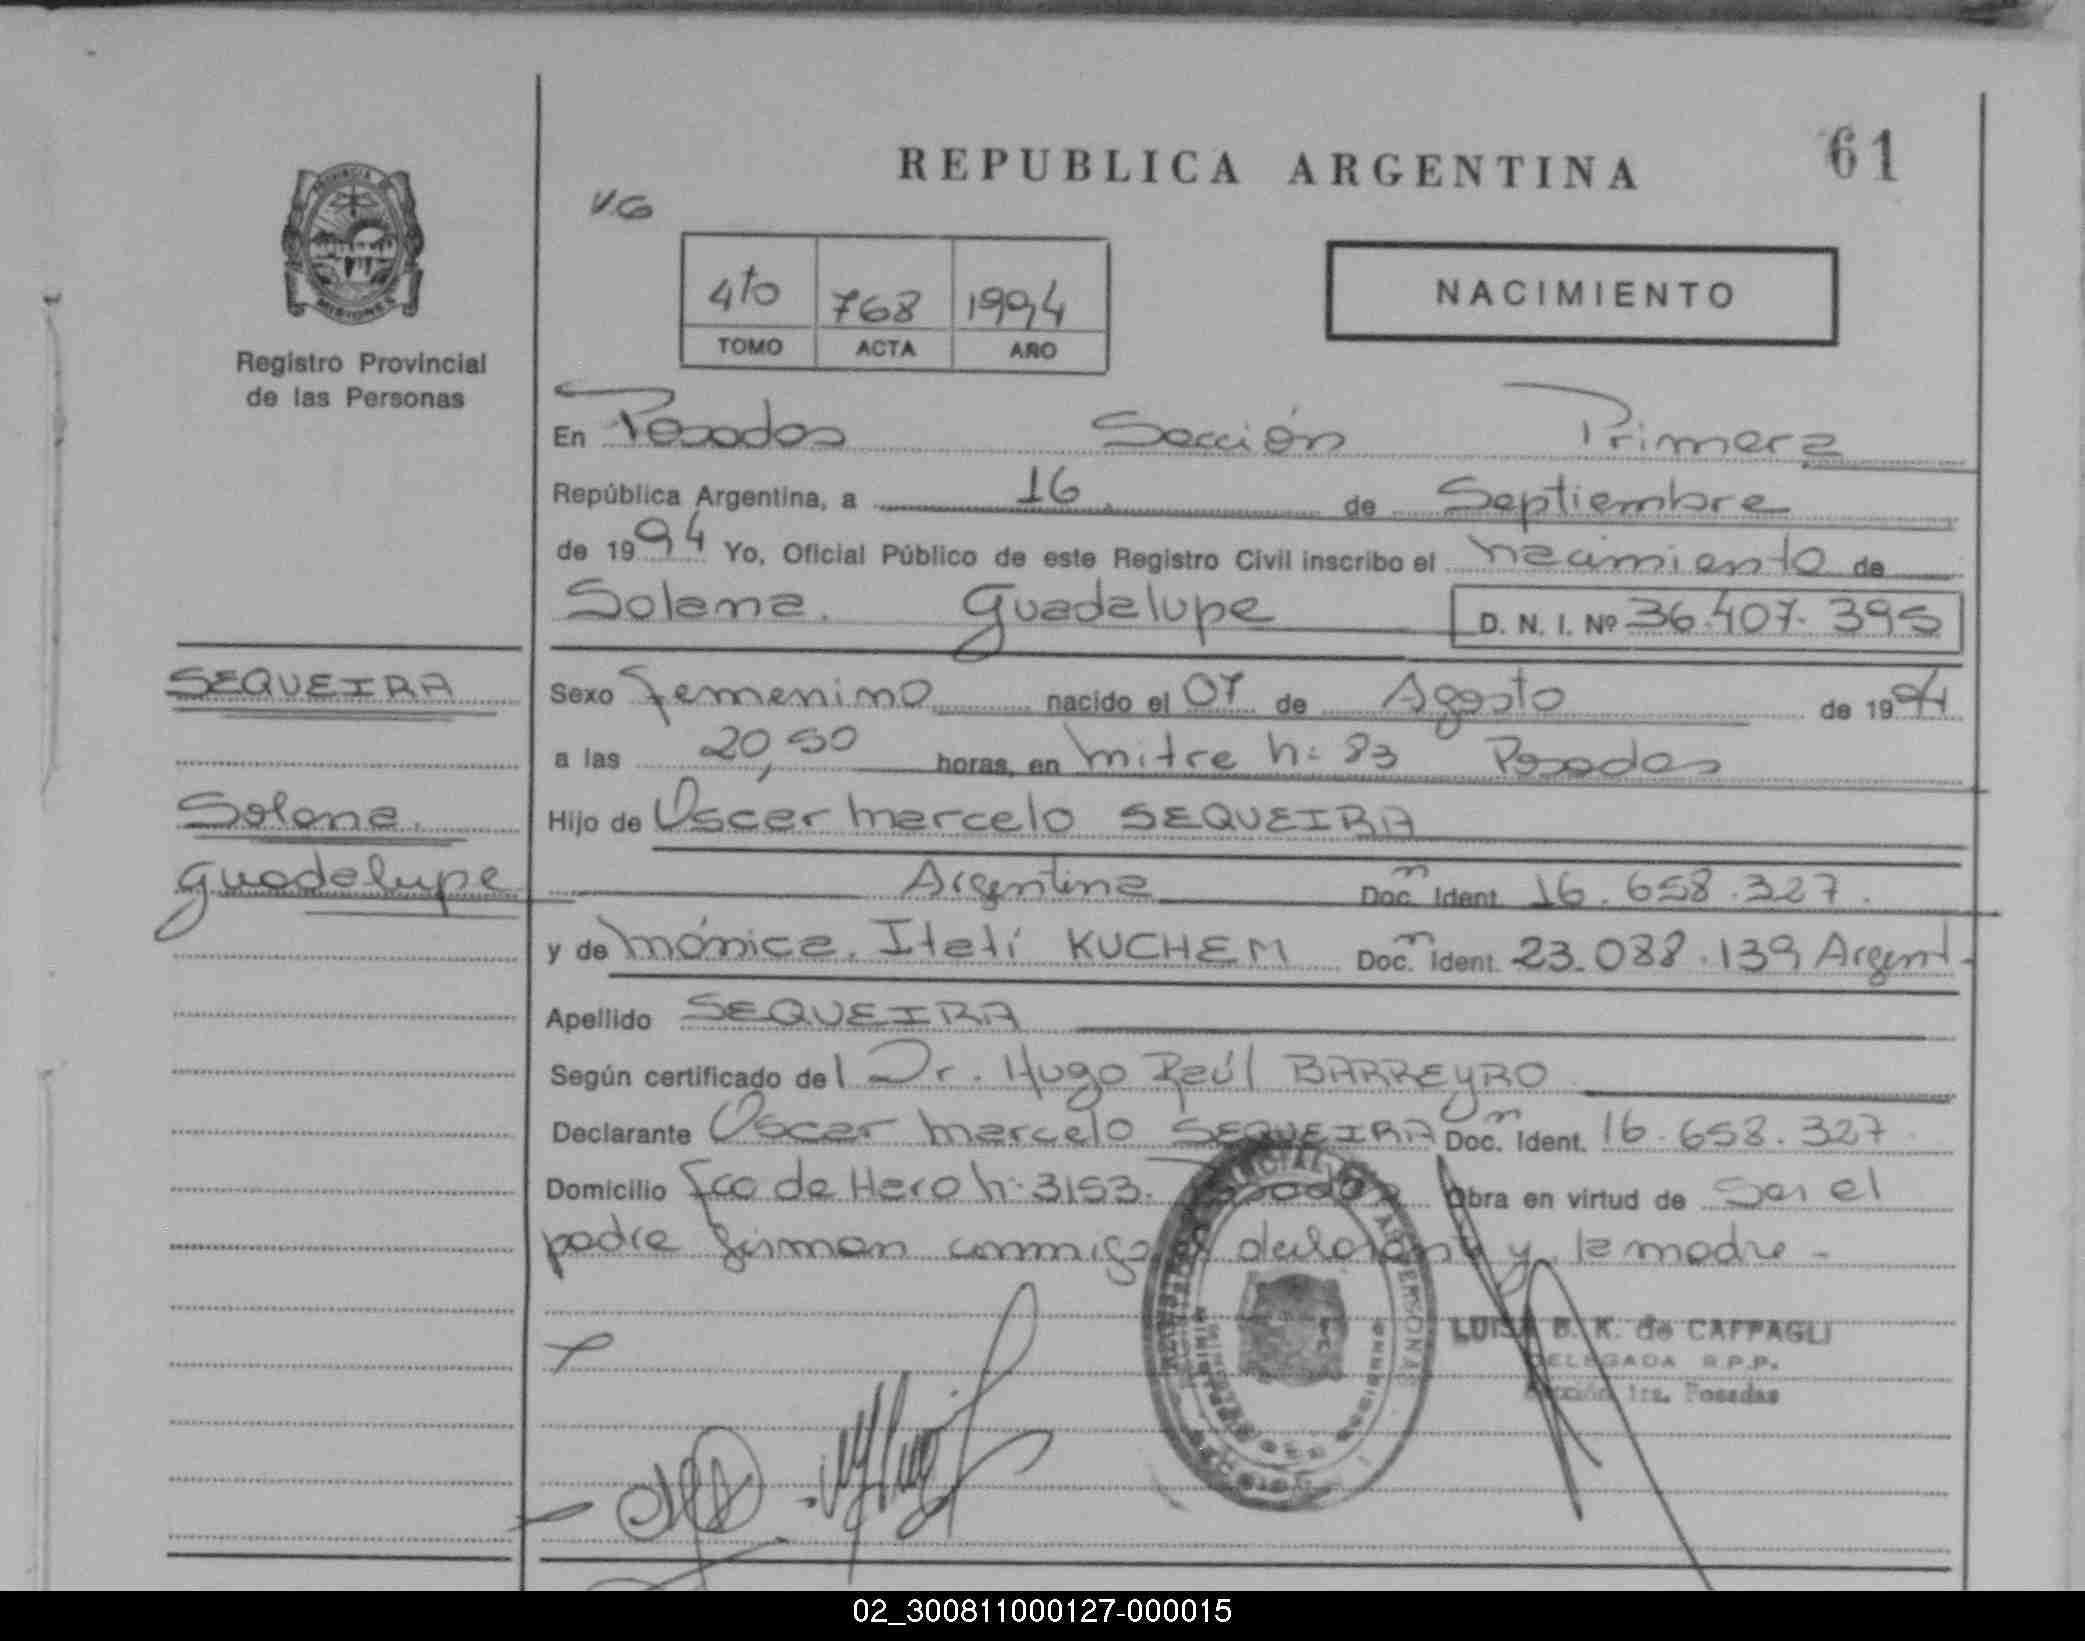 REPUBLICA ARGENTINA
61
V.G
4to 768 1994
TOMO ACTA AÑO
NACIMIENTO
PROVINCIA DE
MISIONES
Registro Provincial
de las Personas
En Posadas Sección Primera
República Argentina, a 16 de Septiembre
de 1994 Yo, Oficial Público de este Registro Civil inscribo el nacimiento de
Solana. Guadalupe D. N. I. Nº 36.407.395
SEQUEIRA
Sexo femenino nacido el 07 de Agosto de 1994
a las 20,50 horas, en Mitre n: 83 Posadas
Solana.
Hijo de Oscar Marcelo SEQUEIRA
Guadalupe
Argentina Doc. Ident. 16.658.327.
y de Mónica. Itatí KUCHEM Doc. Ident. 23.088.139 Argent.
Apellido SEQUEIRA
Según certificado del Dr. Hugo Raúl BARREYRO
Declarante Oscar Marcelo SEQUEIRA Doc. Ident. 16.658.327.
Domicilio Fco de Haro n: 3153. Posadas Obra en virtud de Ser el
padre firman conmigo declarante y la madre -
LUISA B. K. de CAFFAGLI
DELEGADA R.P.P.
Sección 1ra. Posadas
02_300811000127-000015